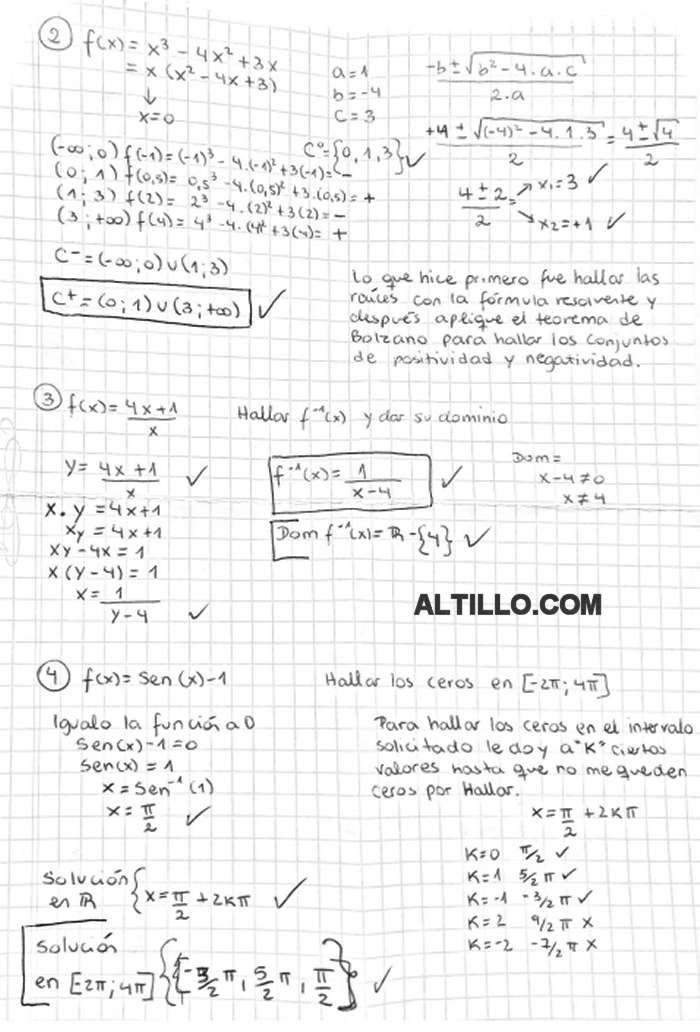 2 f(x) = x³ - 4x² + 3x
= x (x² - 4x + 3)
↓
x=0
a=1
b=-4
c=3
-b±√(b² - 4.a.c)
2.a
+4 ± √((-4)² - 4.1.3) = 4±√4
2 2
4±2 = x₁=3 ✓
2 x₂=+1 ✓
C⁰={0,1,3} ✓
(-∞;0) f(-1) = (-1)³ - 4.(-1)² + 3(-1) = -
(0;1) f(0,5) = 0,5³ - 4.(0,5)² + 3.(0,5) = +
(1;3) f(2) = 2³ - 4.(2)² + 3(2) = -
(3;+∞) f(4) = 4³ - 4.(4)² + 3(4) = +
C⁻ = (-∞;0) ∪ (1;3)
C⁺ = (0;1) ∪ (3;+∞) ✓
Lo que hice primero fue hallar las
raíces con la fórmula resolvente y
después aplique el teorema de
Bolzano para hallar los conjuntos
de positividad y negatividad.
3 f(x) = 4x+1
x
Hallar f⁻¹(x) y dar su dominio
y = 4x+1 ✓
x
x.y = 4x+1
xy = 4x+1
xy-4x = 1
x(y-4) = 1
x = 1
y-4 ✓
f⁻¹(x) = 1 ✓
x-4
Dom f⁻¹(x) = ℝ - {4} ✓
Dom=
x-4≠0
x≠4
ALTILLO.COM
4 f(x) = Sen(x)-1
Hallar los ceros en [-2π;4π]
Igualo la función a 0
Sen(x)-1=0
Sen(x) = 1
x = Sen⁻¹(1)
x = π ✓
2
Para hallar los ceros en el intervalo
solicitado le doy a "K" ciertos
valores hasta que no me queden
ceros por Hallar.
x = π + 2Kπ
2
K=0 π/2 ✓
K=1 5/2 π ✓
K=-1 -3/2 π ✓
K=2 9/2 π X
K=-2 -7/2 π X
Solución
en ℝ { x = π + 2Kπ ✓
2
Solución
en [-2π;4π] {-3/2 π, 5/2 π, π/2} ✓